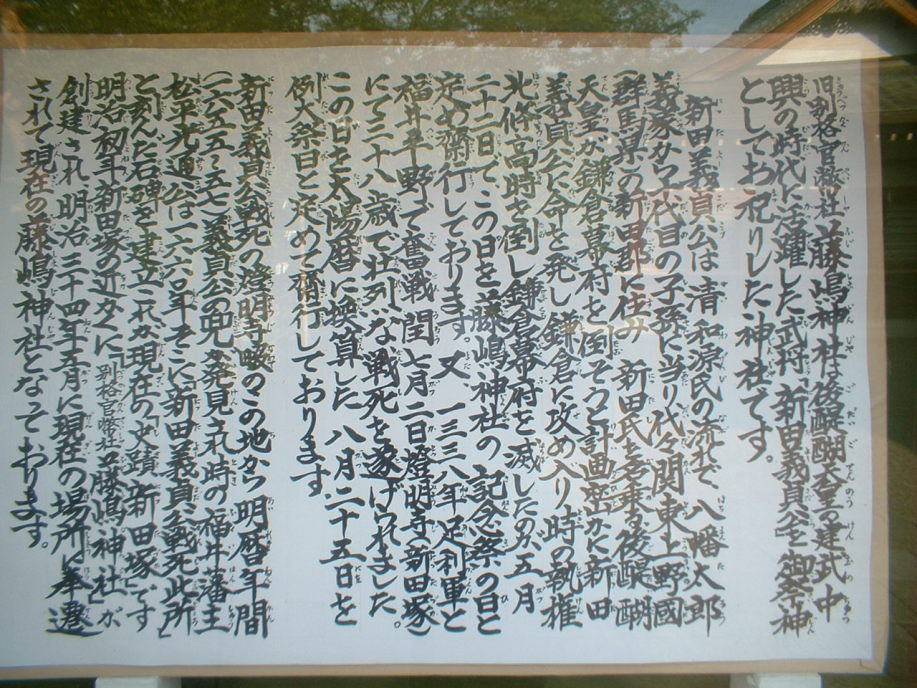 旧別格官幣社 藤嶋神社は後醍醐天皇の建武中
興の時代に活躍した武将「新田義貞公」を御祭神
としてお祀りした神社です。
新田義貞公は清和源氏の流れで、八幡太郎
義家から八代目の子孫に当り代々関東上野國
(群馬県)の新田郡に住み 新田氏を名乗る後醍醐
天皇が鎌倉幕府を倒そうと計画 新田
義貞公に命を発し鎌倉に攻め入り時の執権
北條高時を倒し鎌倉幕府を滅したのが五月
二十二日で、この日を藤嶋神社の 記念祭の日と
定め斎行しております。又 一三三八年足利軍と
福井平野で奮戦 閏七月二日燈明寺(新田塚)
にて三十八歳で壮烈な戦死を遂げられました。
この日を太陽暦に換算した 八月二十五日を
例大祭日と定めて斎行しております。
新田義貞公戦死の燈明寺畷のこの地から 明暦年間
(一六五五~五七)義貞公の兜が発見され時の 福井藩主
松平光通公は一六六〇年そこに「新田義貞公戦死此所」
と刻んだ石碑を建立これが現在の史蹟「新田塚」です
明治初年新田塚の近くに「別格官幣社 藤嶋神社」が
創建され、明治三十四年五月に現在の場所に奉遷
されて現在の藤嶋神社となっております。